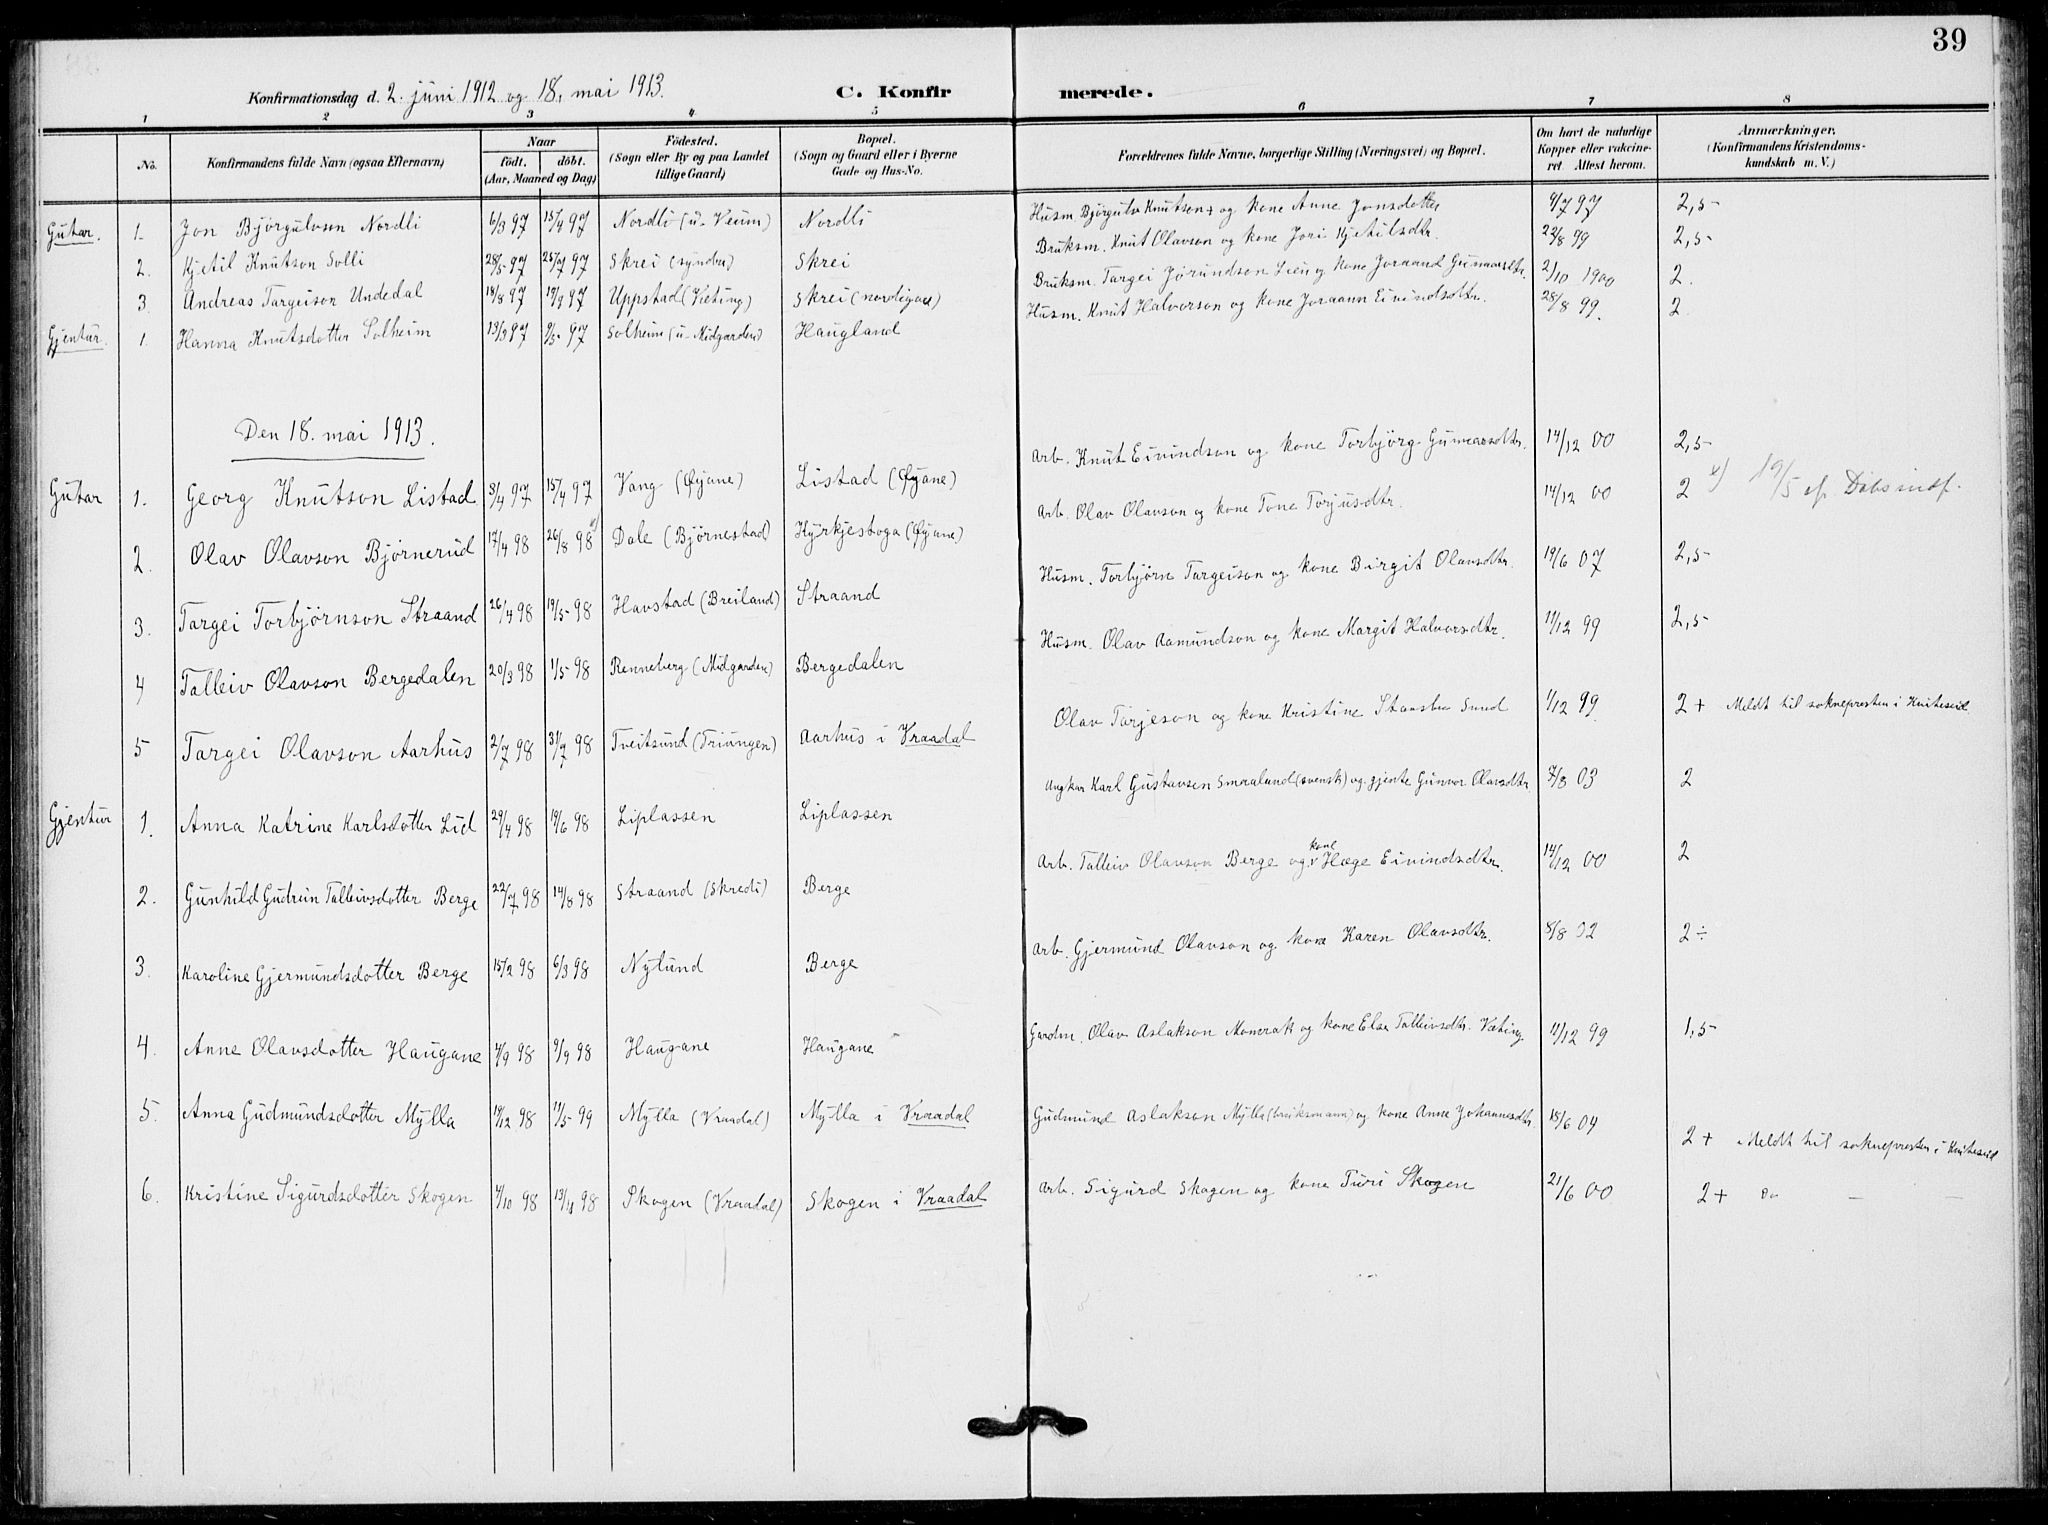 39
Konfirmationsdag d. 2. juni 1912 og 18. mai 1913. C. Konfirmerede.
1 2 3 4 5 6 7 8
No. Konfirmandens fulde Navn (ogsaa Efternavn) Naar födt. döbt. (Aar, Maaned og Dag) Födested. (Sogn eller By og paa Landet tillige Gaard) Bopæl. (Sogn og Gaard eller i Byerne Gade og Hus-No. Forældrenes fulde Navne, borgerlige Stilling (Næringsvei) og Bopæl. Om havt de naturlige Kopper eller vakcineret. Attest herom. Anmærkninger. (Konfirmandens Kristendomskundskab m. V.)
Gutar. 1. Jon Bjørgulvson Nordli 6/3 97 15/4 97 Nordli (u. Veum) Nordli Husm. Bjørgulv Knutsen + og kone Anne Jonsdotter 9/7 97 2,5
2. Kjetil Knutson Solli 28/5 97 25/7 97 Skrei (syndre) Skrei Bruksm. Knut Olavson og kone Jori Kjetilsdtr. 22/8 99 2,5
3. Andreas Targeison Undedal 18/8 97 19/9 97 Uppstad (Væting) Skrei (nordigard) Bruksm. Targei Jørundsen Lien og kone Joraand Gunnarsdtr. 2/10 1900 2.
Gjentur. 1. Hanna Knutsdotter Solheim 13/3 97 9/5 97 Solheim (u. Midgarden) Haugland Husm. Knut Halvorson og kone Joraann Eivindsdtr. 28/8 99. 2
Den 18. mai 1913.
Gutar 1. Georg Knutson Listad 3/4 97 15/4 97 Vang (Øyane) Listad (Øyane) Arb. Knut Eivindson og kone Torbjørg Gunnarsdtr. 14/12 00 2,5
2. Olav Olavson Bjørnerud 17/4 98 26/8 98 x) Dale (Bjørnestad) Kyrkjestoga (Øyane) Arb. Olav Olavson og kone Tone Torjusdtr. 14/12 00 2 x) 19/5 ef. Dåbsindf.
3. Targei Torbjørnson Straand 26/4 98 19/5 98 Havstad (Breiland) Straand Husm. Torbjørn Targeison og kone Birgit Olavsdtr. 19/6 07 2,5
4 Talleiv Olavson Bergedalen 20/3 98 1/5 98 Renneberg (Midgarden) Bergedalen Husm. Olav Aamundson og kone Margit Halvorsdtr. 11/12 99 2,5
5 Targei Olavson Aarhus 2/7 98 31/7 98 Tveitsund (Triungen) Aarhus i Vraadal Olav Torjeson og kone Kristine Sund 1/12 99 2+ Meldt til sokneprestten i Kviteseid
Gjentur 1. Anna Katrine Karlsdotter Lid 29/4 98 19/6 98 Liplassen Liplassen Ungkar Karl Gustavsen Smraaland (svensk) og gjente Gunvor Olavsdtr 7/8 03 2
2. Gunhild Gudrun Talleivsdotter Berge 22/7 98 14/8 98 Straand (Skredi) Berge Arb. Talleiv Olavson Berge og kone Hæge Eivindsdtr. 14/12 00 2
3. Karoline Gjermundsdotter Berge 15/2 98 6/3 98 Nylund Berge Arb. Gjermund Olavson og kone Karen Olavsdtr. 8/8 02 2÷
4. Anne Olavsdotter Haugane 4/9 98 9/9 98 Haugane Haugane Gardm. Olav Aslakson Momrak og kone Else Talleivsdtr. Væting 11/12 99 1,5
5. Anna Gudmundsdotter Mylla 19/12 98 11/5 99 Mylla (Vraadal) Mylla i Vraadal Gudmund Aslakson Mylla (bruksmann) og kone Anne Johannesdtr. 15/6 04 2+ Meldt til soknepresten i Kviteseid
6. Kristine Sigurdsdotter Skogen 4/10 98 13/11 98 Skogen (Vraadal) Skogen i Vraadal Arb. Sigurd Skogen og kone Turi Skogen 21/6 00 2+ Do — —